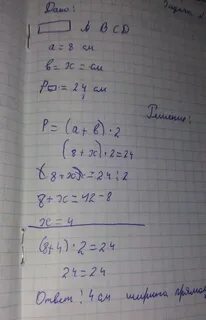 Дано:
Задача
ABCD
a = 8 см
в = x = см
P▭ = 24 см
Решение:
P = (a + в) · 2
(8 + x) · 2 = 24
(8 + x) = 24 : 2
8 + x = 12 - 8
x = 4
(8 + 4) · 2 = 24
24 = 24
Ответ: 4 см ширина прямоу